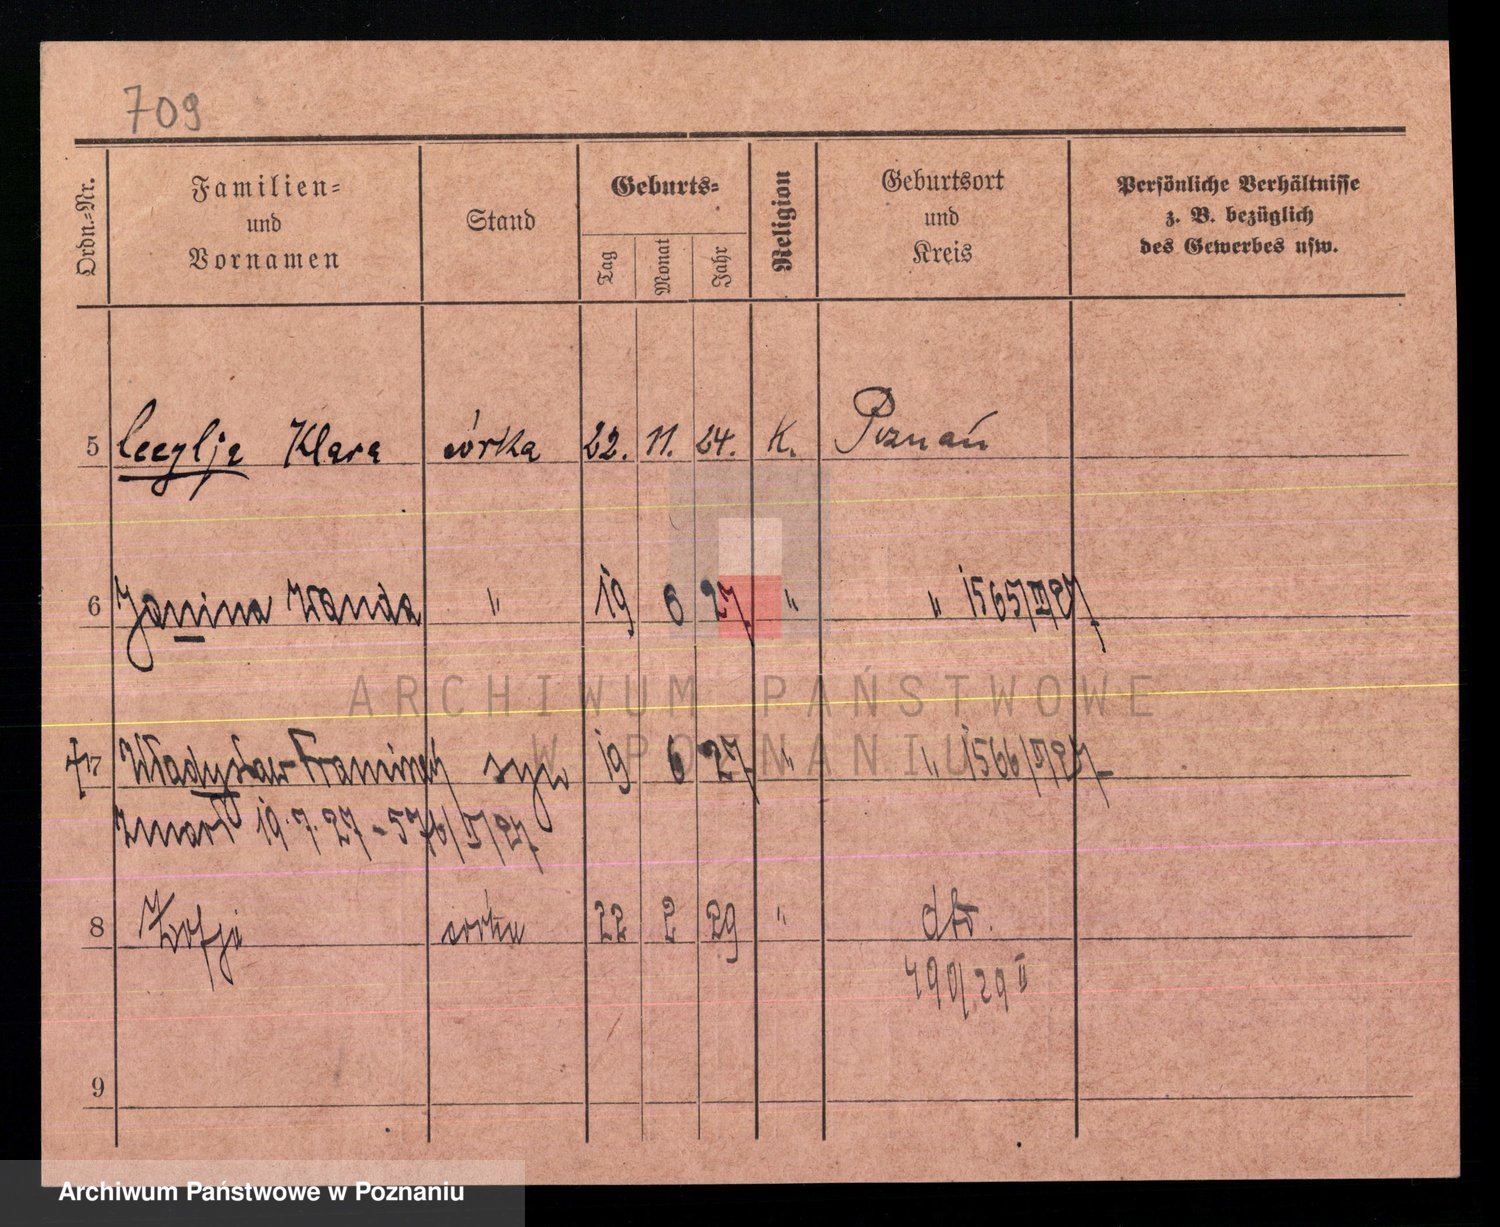 709
Ordn.=Nr.
Familien=
und
Vornamen
Stand
Geburts=
Tag
Monat
Jahr
Religion
Geburtsort
und
Kreis
Persönliche Verhältnisse
z. B. bezüglich
des Gewerbes usw.
5 Cecylja Klara córka 22. 11. 24. K. Poznań
6 Janina Wanda " 19 6 27 " " 1565/III/27
ARCHIWUM PAŃSTWOWE
W POZNANIU
†7 Władysław syn 19 6 27 " " 1566/
zmarł 19.7.27 -
8 Zofja córka 22 2 29 " dto.
490/29 II
9
Archiwum Państwowe w Poznaniu